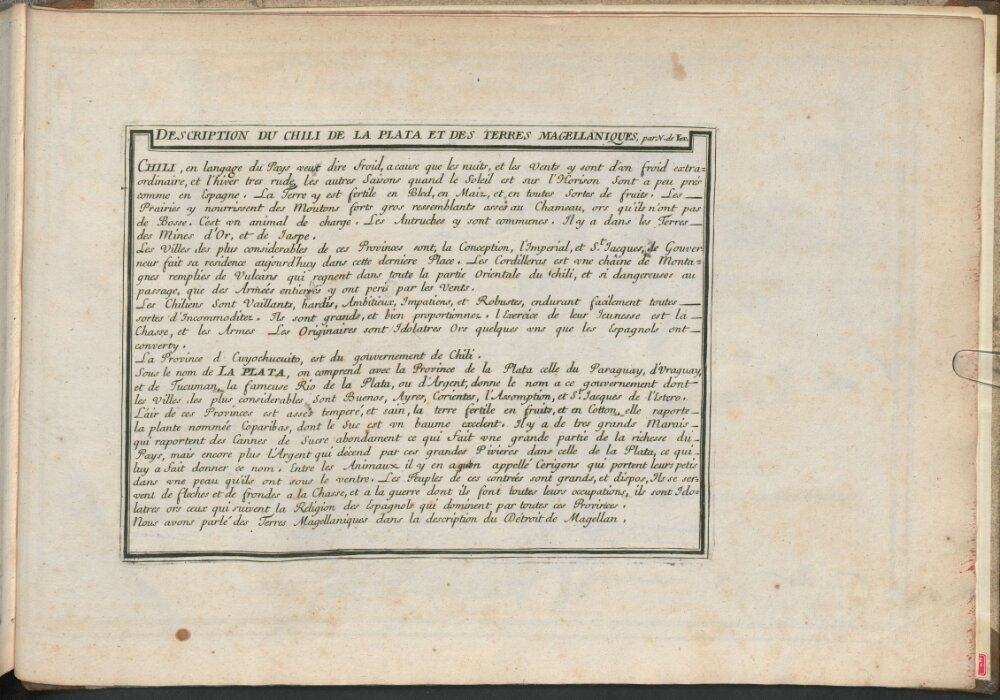 DESCRIPTION DU CHILI DE LA PLATA ET DES TERRES MAGELLANIQUES, par N. de Fer.
CHILI, en langage du Pays veut dire froid, a cause que les nuits, et les vents y sont d'vn froid extra-
ordinaire, et l'hiver tres rude, les autres Saisons quand le Soleil est sur l'Horison Sont a peu prés
comme en Espagne. La Terre y est fertile en Bled, en Maiz, et en toutes Sortes de fruits. Les
Prairies y nourrissent des Moutons forts gros ressemblants assés au Chameau, ors qu'ils n'ont pas
de Bosse. C'est vn animal de charge. Les Autruches y sont communes. Il y a dans les Terres
des Mines d'Or, et de Jaspe.
Les Villes les plus considerables de ces Provinces sont, la Conception, l'Imperial, et St. Jacques, de Gouver
neur fait sa residence aujourd'huy dans cette derniere Place. Les Cordilleras est vne chaine de Monta-
gnes remplies de Vulcans qui regnent dans toute la partie Orientale du Chili, et si dangereuses au
passage, que des Armées entieres y ont peri par les Vents.
Les Chiliens Sont Vaillants, hardis, Ambitieux, Impatiens, et Robustes, endurant facilement toutes
sortes d'Incommoditez. Ils sont grands, et bien proportionnez. l'Exercice de leur Jeunesse est la
Chasse, et les Armes Les Originaires sont Idolatres Ors quelques vns que les Espagnols ont
converty.
La Province d' Cuyochucuito, est du gouvernement de Chili.
Sous le nom de LA PLATA, on comprend avec la Province de la Plata celle du Paraguay, d'Vraguay,
et de Tucuman, la fameuse Rio de la Plata, ou d'Argent, donne le nom a ce gouvernement dont
les Villes les plus considerables Sont Buenos, Ayres, Corientes, l'Assomption, et St. Jacques de l'Estero.
L'air de ces Provinces est assés temperé, et sain, la terre fertile en fruits, et en Cotton, elle raporte
la plante nommée Coparibas, dont le Suc est vn baume excelent. Il y a de tres grands Marais
qui raportent des Cannes de Sucre abondament ce qui Fait vne grande partie de la richesse du
Pays, mais encore plus l'Argent qui décend par ces grandes Rivieres dans celle de la Plata, ce qui
luy a fait donner ce nom. Entre les Animaux il y en a qu'on appellé Cerigons qui portent leurs petis
dans vne peau qu'ils ont sous le ventre. Les Peuples de ces contrées sont grands, et dispos, Ils se ser-
vent de fleches et de frondes a la Chasse, et a la guerre dont ils font toutes leurs occupations, ils sont Ido-
latres ors ceux qui suivent la Religion des Espagnols qui dominent par toutes ces Provinces.
Nous avons parlé des Terres Magellaniques dans la description du Détroit de Magellan.